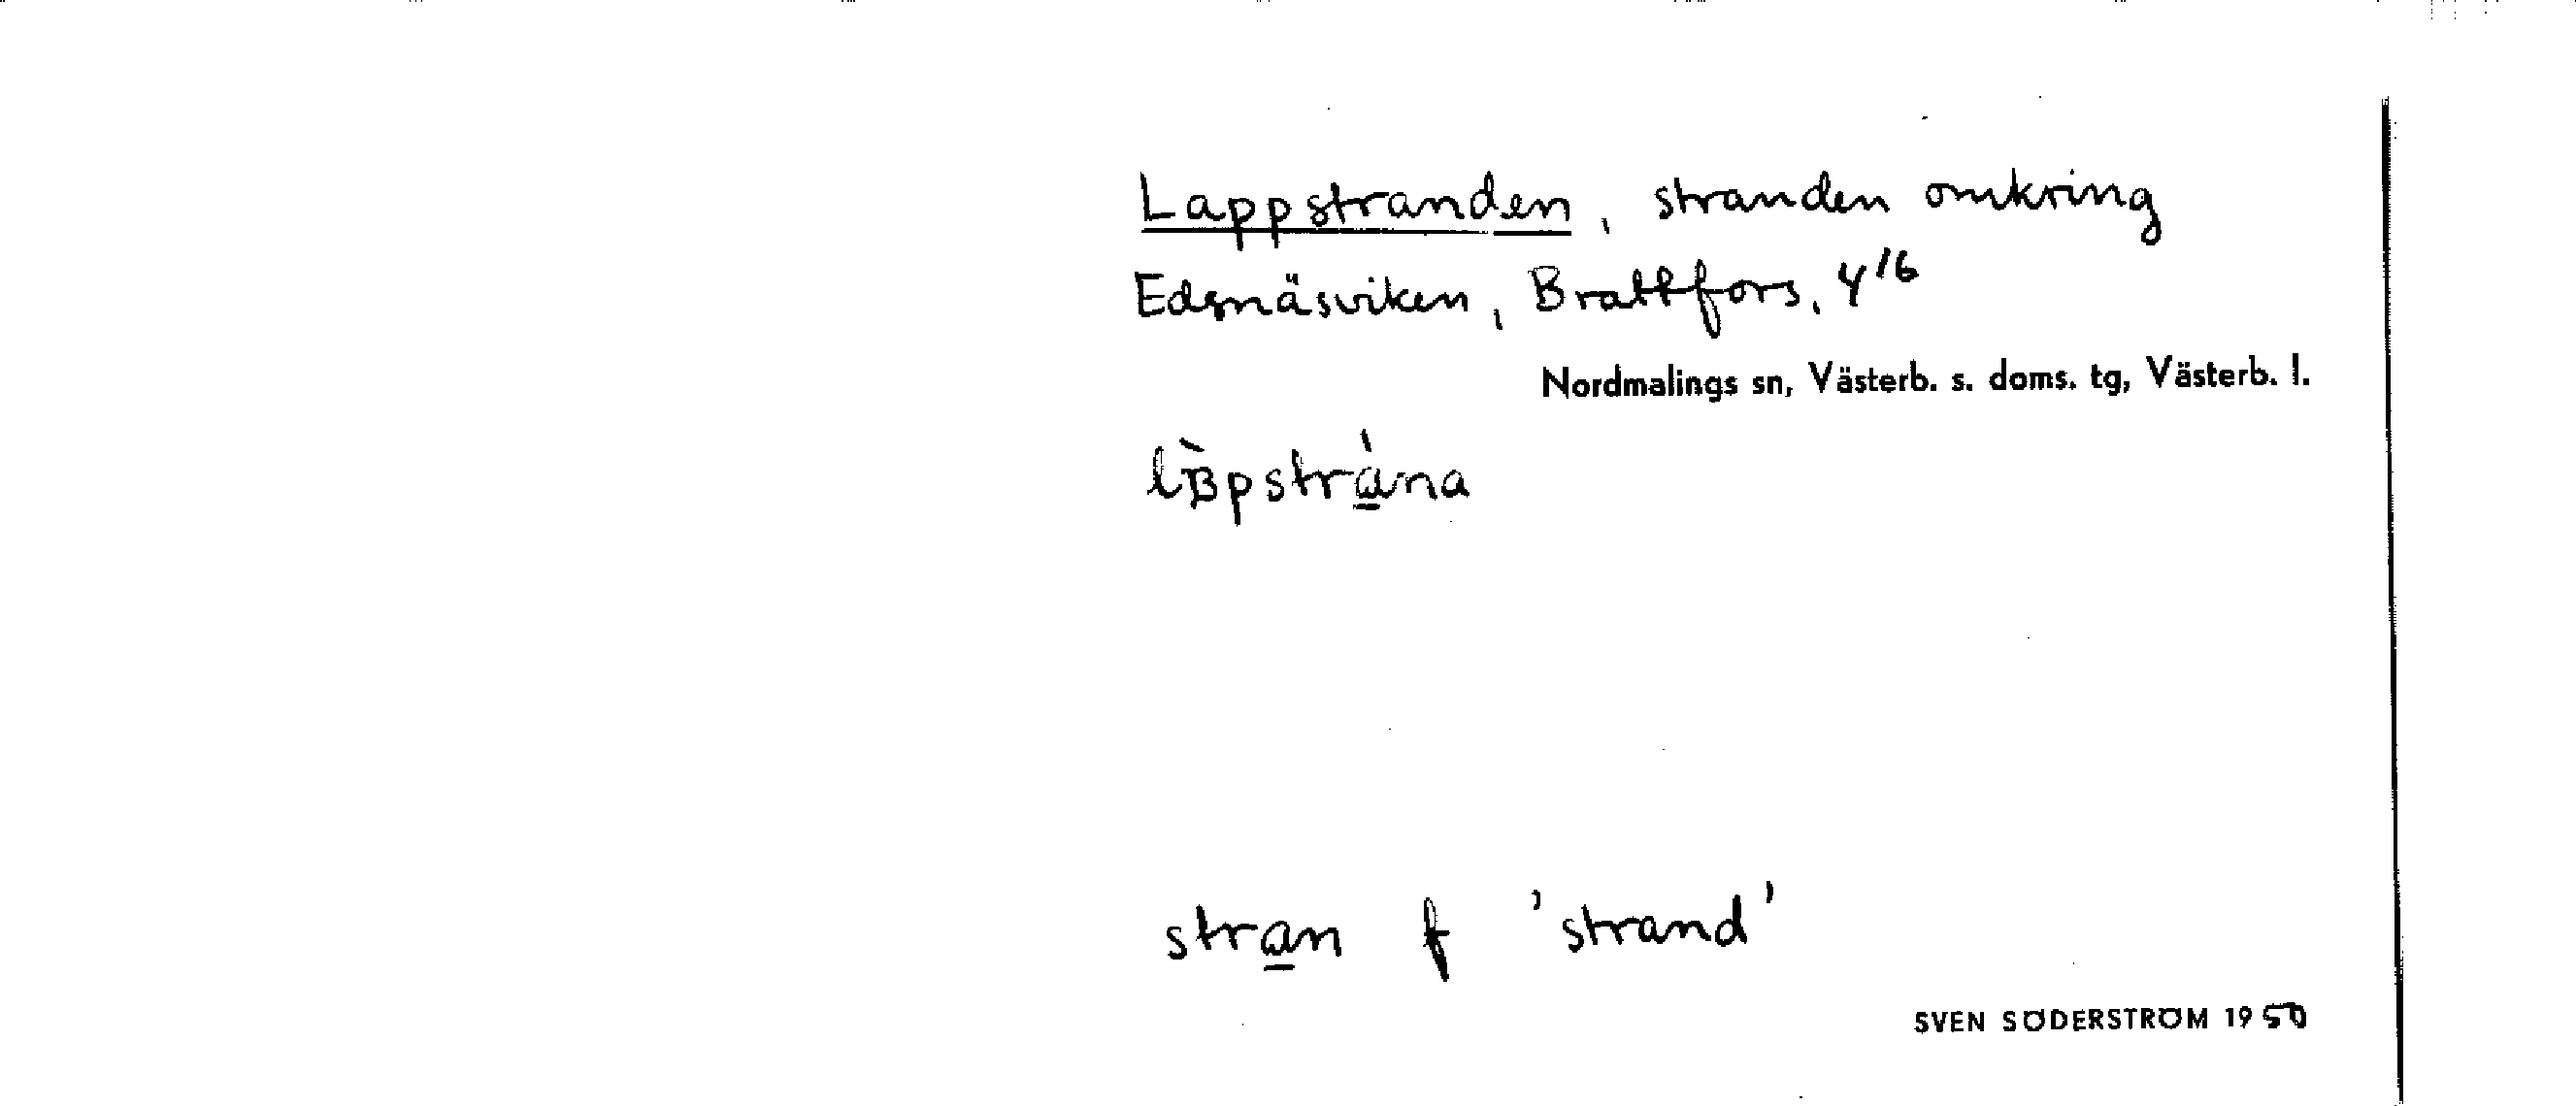 Lappstranden, stranden omkring
Edsnäsviken, Brattfors. 4/6
Nordmalings sn, Västerb. s. doms. tg, Västerb. l.
stran f 'strand'
SVEN SÖDERSTRÖM 1950